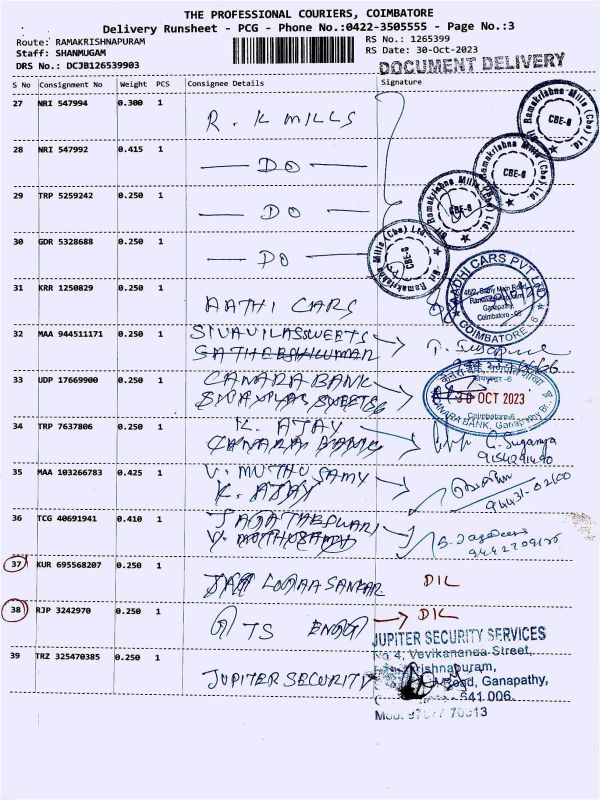 THE PROFESSIONAL COURIERS, COIMBATORE
Delivery Runsheet - PCG - Phone No.:0422-3505555 - Page No.:3
Route: RAMAKRISHNAPURAM
RS No.: 1265399
Staff: SHANMUGAM
RS Date: 30-Oct-2023
DRS No.: DCJB126539903
DOCUMENT DELIVERY
S No Consignment No Weight PCS Consignee Details Signature
27 NRI 547994 0.300 1
R. K MILLS
Sri Ramakrishna Mills (Cbe) Ltd.
CBE-6
28 NRI 547992 0.415 1
DO
Sri Ramakrishna Mills (Cbe) Ltd.
CBE-6
29 TRP 5259242 0.250 1
DO
Sri Ramakrishna Mills (Cbe) Ltd.
CBE-6
30 GDR 5328688 0.250 1
DO
Sri Ramakrishna Mills (Cbe) Ltd.
CBE-6
31 KRR 1250829 0.250 1
AATHI CARS
AADHI CARS PVT Ltd
Ganapathy,
Coimbatore - 06
COIMBATORE - 6
32 MAA 944511171 0.250 1
SIVAVILASSWEETS
33 UDP 17669900 0.250 1
CANARA BANK
30 OCT 2023
Coimbatore-6
CANARA BANK, Ganapathy Br.,
34 TRP 7637806 0.250 1
K. AJAY
CANARA BANK
35 MAA 103266783 0.425 1
V. MUTHUSAMY
K. AJAY
36 TCG 40691941 0.410 1
37 KUR 695568207 0.250 1
D/L
38 RJP 3242970 0.250 1
TS
D/L
JUPITER SECURITY SERVICES
No 4, Vevikananda Street,
39 TRZ 325470385 0.250 1
JUPITER SECURITY
Road, Ganapathy,
641 006.